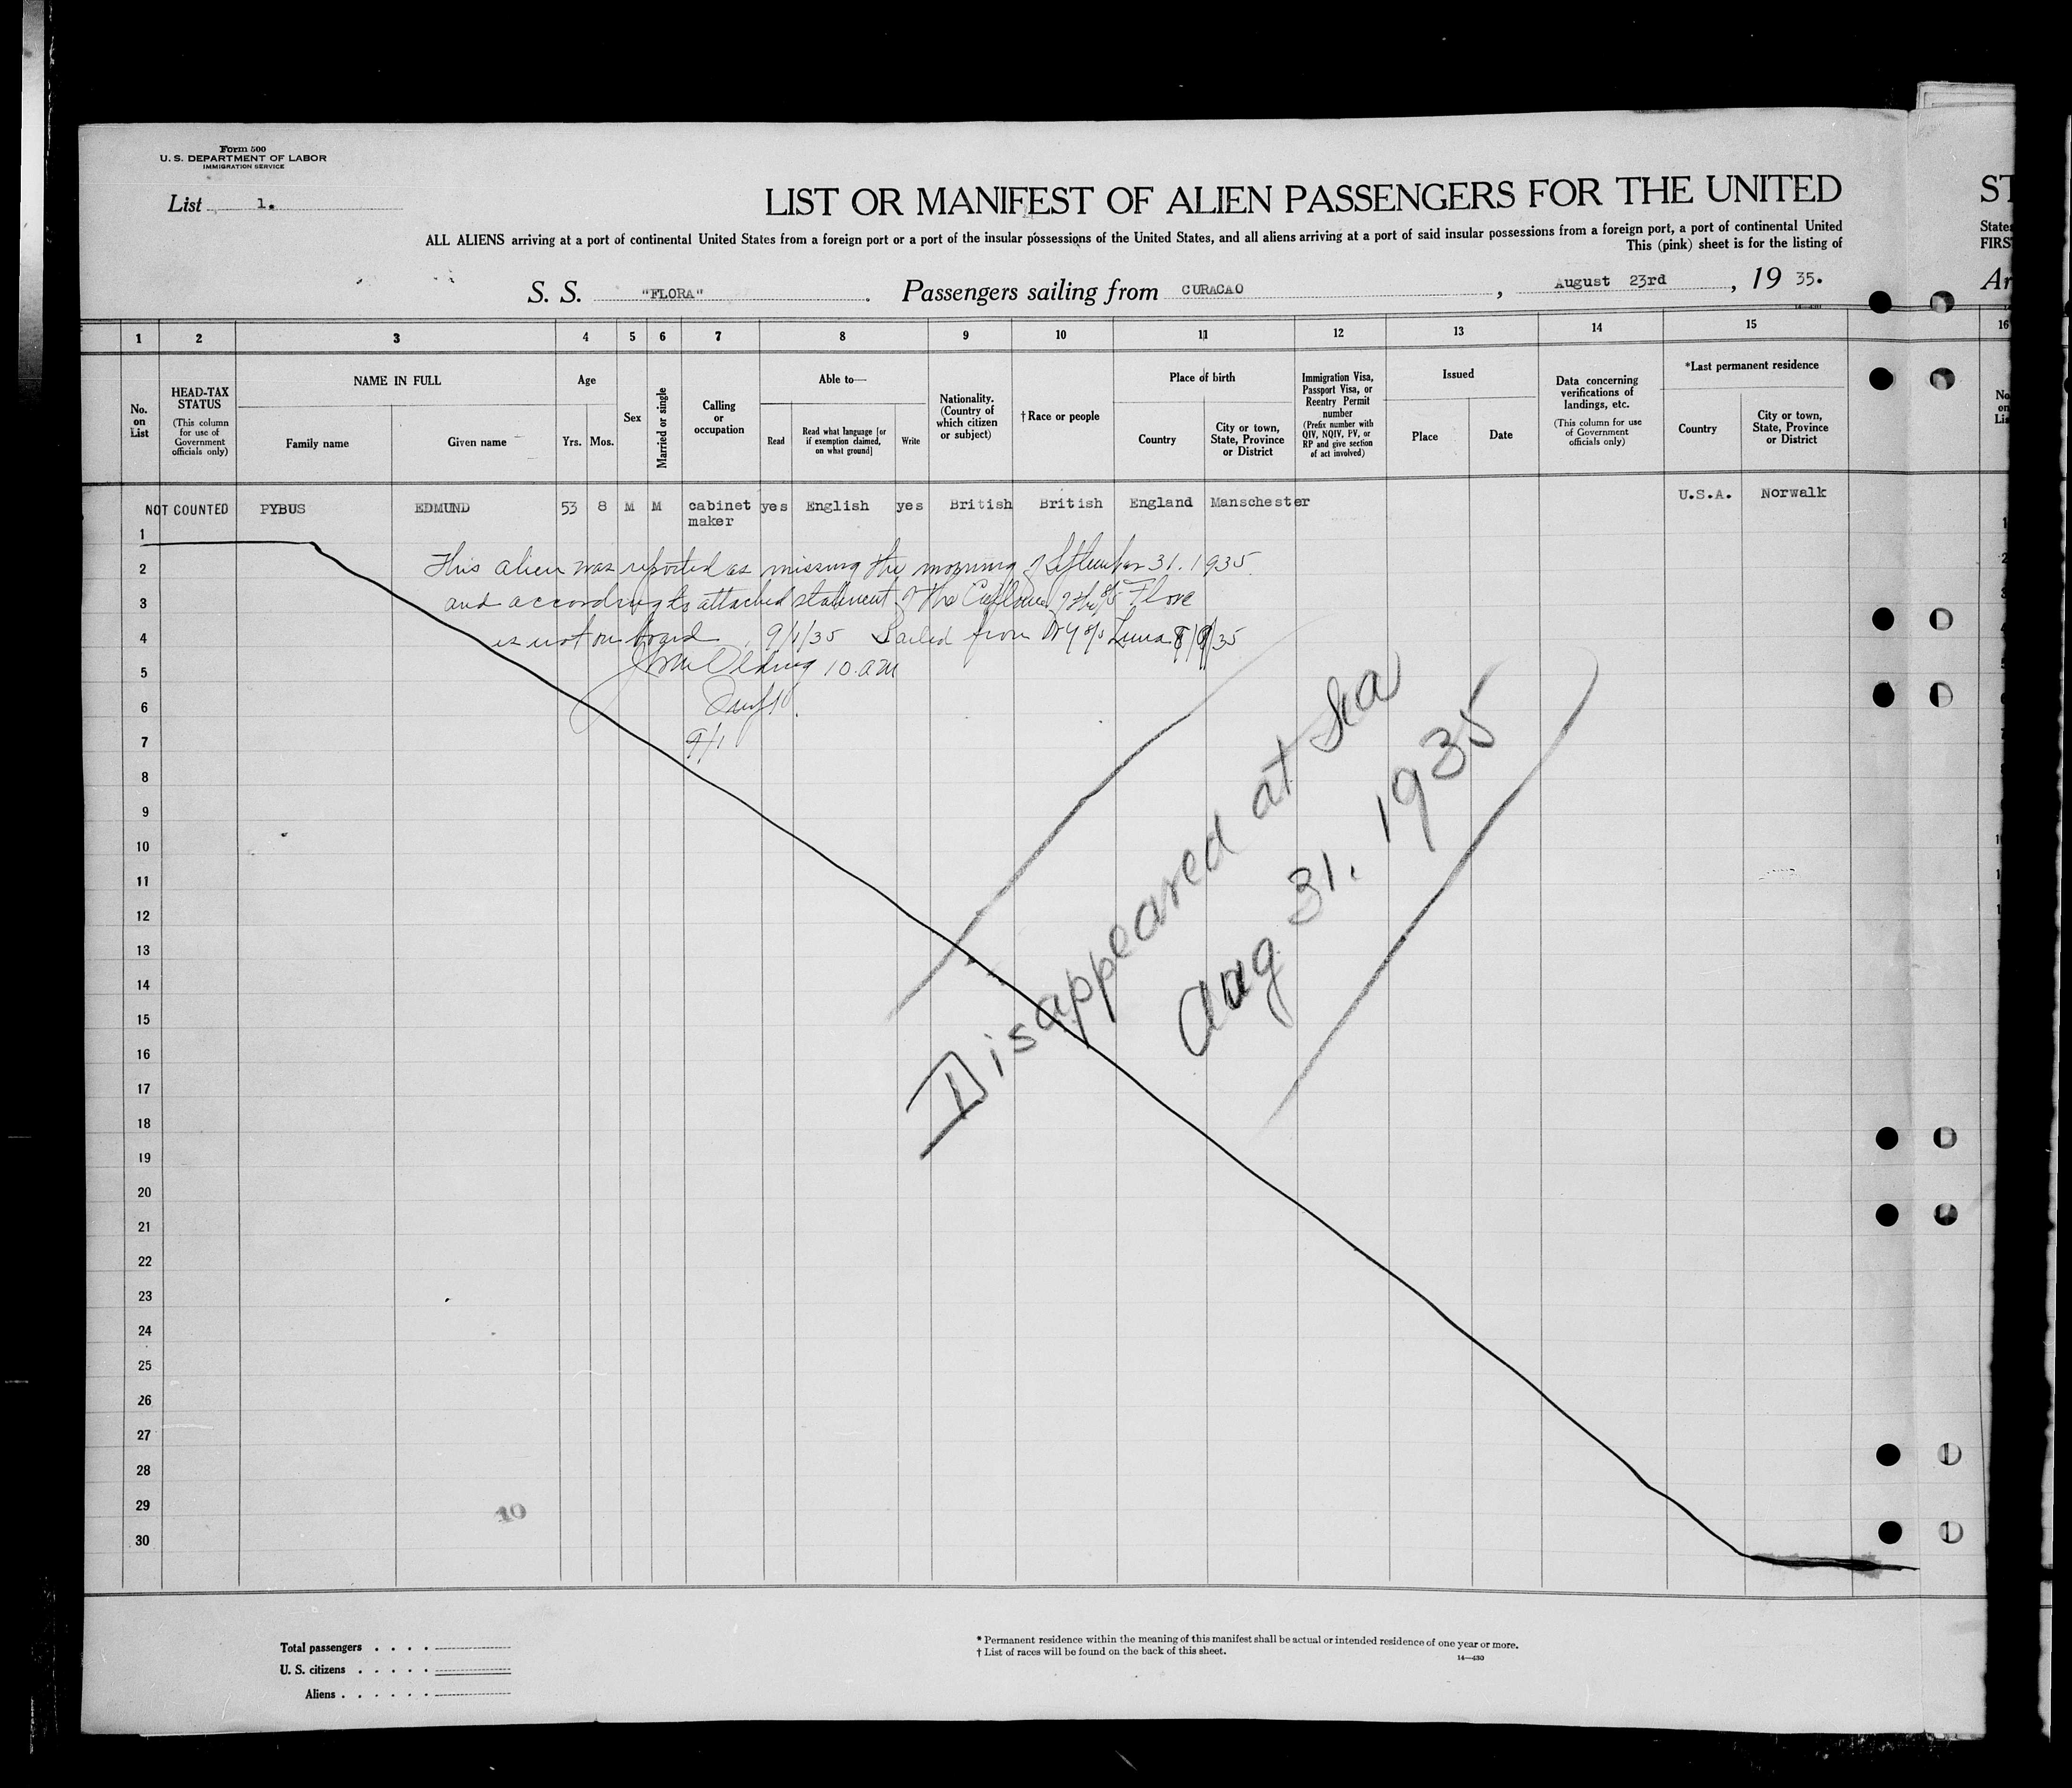 Form 500
U. S. DEPARTMENT OF LABOR
IMMIGRATION SERVICE
List 1.
LIST OR MANIFEST OF ALIEN PASSENGERS FOR THE UNITED
ST
ALL ALIENS arriving at a port of continental United States from a foreign port or a port of the insular possessions of the United States, and all aliens arriving at a port of said insular possessions from a foreign port, a port of continental United
States
This (pink) sheet is for the listing of
FIRS
S. S. "FLORA" . Passengers sailing from CURACAO , August 23rd , 19 35.
Ar
1 2 3 4 5 6 7 8 9 10 11 12 13 14 15 16
No. on List
HEAD-TAX STATUS
(This column for use of Government officials only)
NAME IN FULL
Family name
Given name
Age
Yrs.
Mos.
Sex
Married or single
Calling or occupation
Able to—
Read
Read what language [or if exemption claimed, on what ground]
Write
Nationality. (Country of which citizen or subject)
†Race or people
Place of birth
Country
City or town, State, Province or District
Immigration Visa, Passport Visa, or Reentry Permit number
(Prefix number with QIV, NQIV, PV, or RP and give section of act involved)
Issued
Place
Date
Data concerning verifications of landings, etc.
(This column for use of Government officials only)
*Last permanent residence
Country
City or town, State, Province or District
NOT COUNTED PYBUS EDMUND 53 8 M M cabinet maker yes English yes British British England Manschester U.S.A. Norwalk
1
This alien was reported as missing the morning of September 31. 1935
2
and according to attached statement of the of the S/S Flora
3
is not on board 9/1/35 Sailed from
4
10. a m
5
6
9/1
7
8
9
10
11
12
13
14
15
16
17
18
19
20
21
22
23
24
25
26
27
28
29
30
Disappeared at Sea
Aug 31. 1935
10
Total passengers
U. S. citizens
Aliens
* Permanent residence within the meaning of this manifest shall be actual or intended residence of one year or more.
† List of races will be found on the back of this sheet.
14—430